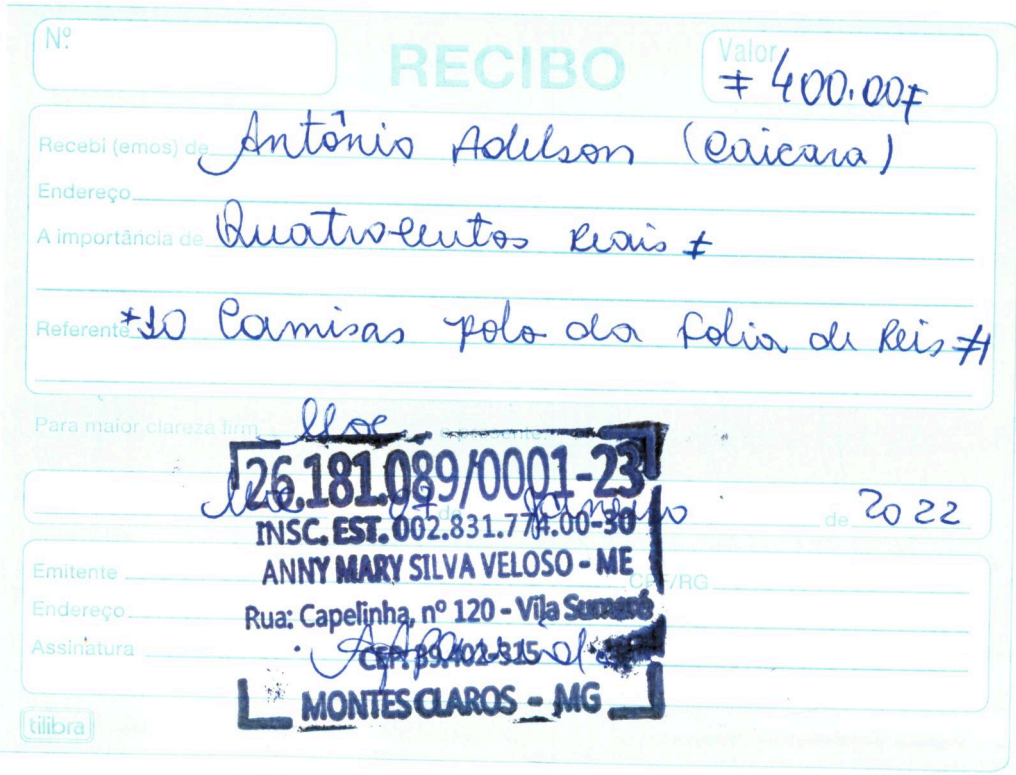 Nº
RECIBO
Valor
≠ 400.00≠
Recebi (emos) de Antônio Adelson (Caicara)
Endereço
A importância de Quatrocentos reais ≠
Referente *10 Camisas polo da folia de Reis #
Para maior clareza firm Moc o presente.
Moc de Janeiro de 2022
26.181.089/0001-23
INSC. EST. 002.831.774.00-30
ANNY MARY SILVA VELOSO - ME
Emitente CPF/RG
Rua: Capelinha, nº 120 - Vila Sumaré
Endereço
CEP: 39.402-315
Assinatura
MONTES CLAROS - MG
tilibra